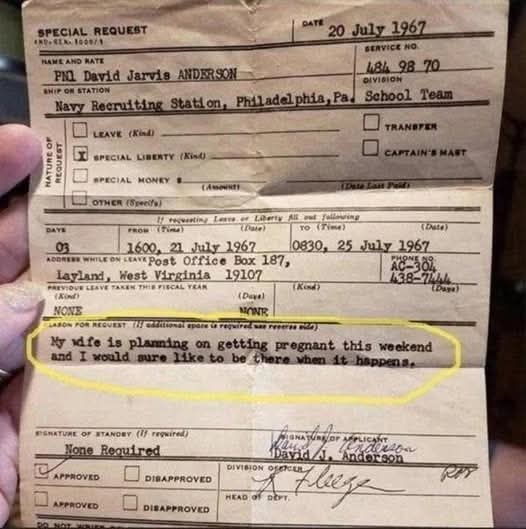 SPECIAL REQUEST
DATE 20 July 1967
SERVICE NO.
NAME AND RATE
PN1 David Jarvis ANDERSON 484 98 70
SHIP OR STATION DIVISION
Navy Recruiting Station, Philadelphia, Pa. School Team
NATURE OF REQUEST
LEAVE (Kind) TRANSFER
X SPECIAL LIBERTY (Kind) CAPTAIN'S MAST
SPECIAL MONEY $ (Amount) (Date Last Paid)
OTHER (Specify)
If requesting Leave or Liberty fill out following
DAYS FROM (Time) (Date) TO (Time) (Date)
03 1600, 21 July 1967 0830, 25 July 1967
ADDRESS WHILE ON LEAVE Post Office Box 187, PHONE NO.
Layland, West Virginia 19107 AC-304
438-7444
PREVIOUS LEAVE TAKEN THIS FISCAL YEAR
(Kind) (Days) (Kind) (Days)
NONE NONE
REASON FOR REQUEST (If additional space is required use reverse side)
My wife is planning on getting pregnant this weekend
and I would sure like to be there when it happens.
SIGNATURE OF STANDBY (If required) SIGNATURE OF APPLICANT
David J. Anderson
None Required David J. Anderson
APPROVED DISAPPROVED DIVISION OFFICER
APPROVED DISAPPROVED HEAD OF DEPT.